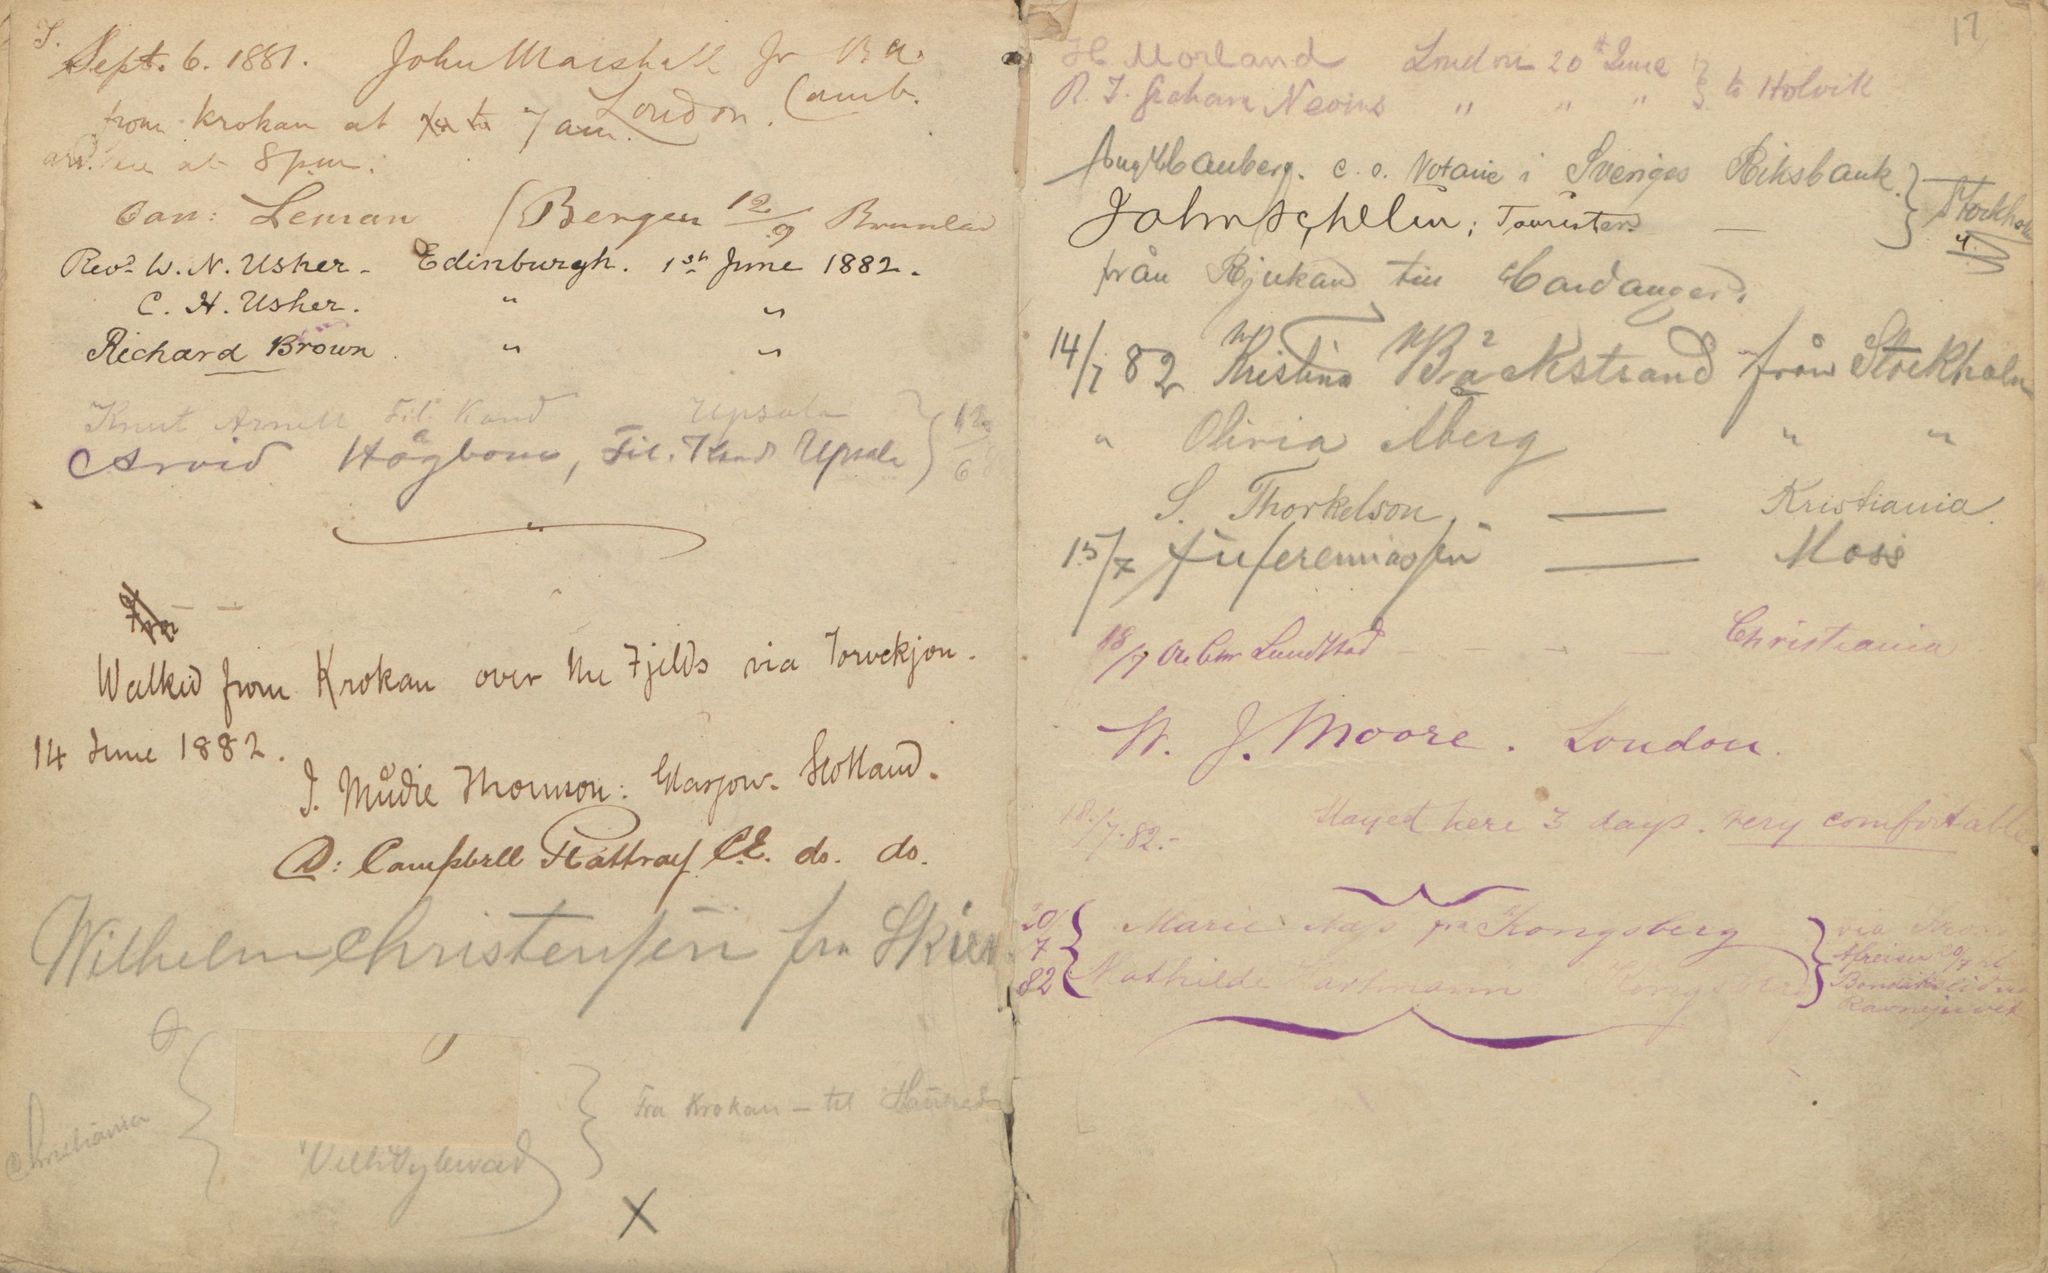 Sept. 6. 1881. John Marshall Jr B A.
Camb.
from Krokan at 7 am. London.
arr. here at 8 pm.
Leman Bergen 12/9
Revd W. N. Usher - Edinburgh. 1st June 1882.
C. H. Usher. " "
Richard Brown. " "
Knut Arnell Fil. Kand Upsala
Arvid Högbom, Fil. Kand Upsala } 12/6
Walked from Krokan over the Fjelds via
14 June 1882.
J. Mudie Thomson: Glasgow. Scotland.
D: Campbell Rattray C.E. do. do.
Wilhelm Christensen fra Skien
Christiania
Fra Krokan - til
X
17
H Morland London 20th June
R. T. Graham Nevins " " " } to Holvik
Hauberg. e. o. Notarie i Sveriges Riksbank.
John Schelin; Tourister. — } Stockholm
från Rjukand till Hardanger.
14/7 82 Kristina Bäckstrand från Stockholm
" Olivia Åberg " "
S. Thorkelson. — Kristiania.
15/7 — Moss
18/7 Lundstad - - - Christiania
W. J. Moore. London.
18/7.82.- Stayed here 3 days. very comfortable
20/7 82 { Marie Aas fra Kongsberg } via
Mathilde Hartmann Kongsberg
Afreiser 20/7 til